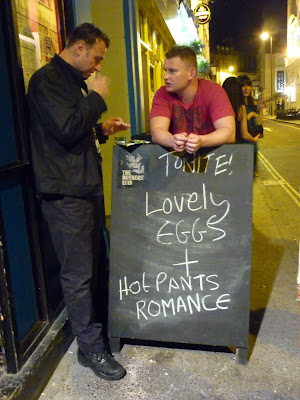 THE
MOTHERS'
RUIN
TONITE!
Lovely
EGGS
+
HOT PANTS
ROMANCE